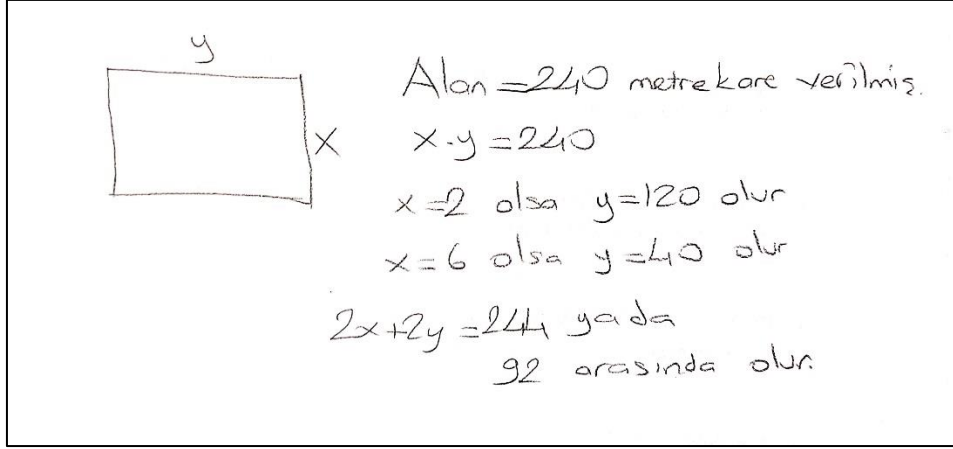 y
x
Alan = 240 metrekare verilmiş.
x.y = 240
x=2 olsa y=120 olur
x=6 olsa y=40 olur
2x+2y = 244 yada
92 arasında olur.